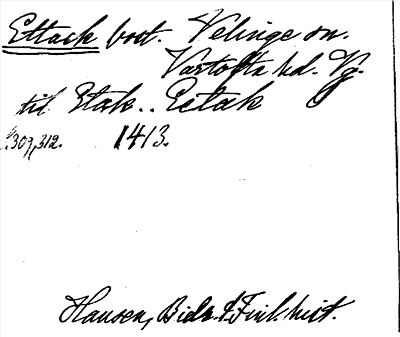 Ettack bost. Velinge sn.
Vartofta hd. Vg.
til Etak.. Eetak
309,312. 1413.
Hausen, Bidr. t. Finl. hist.